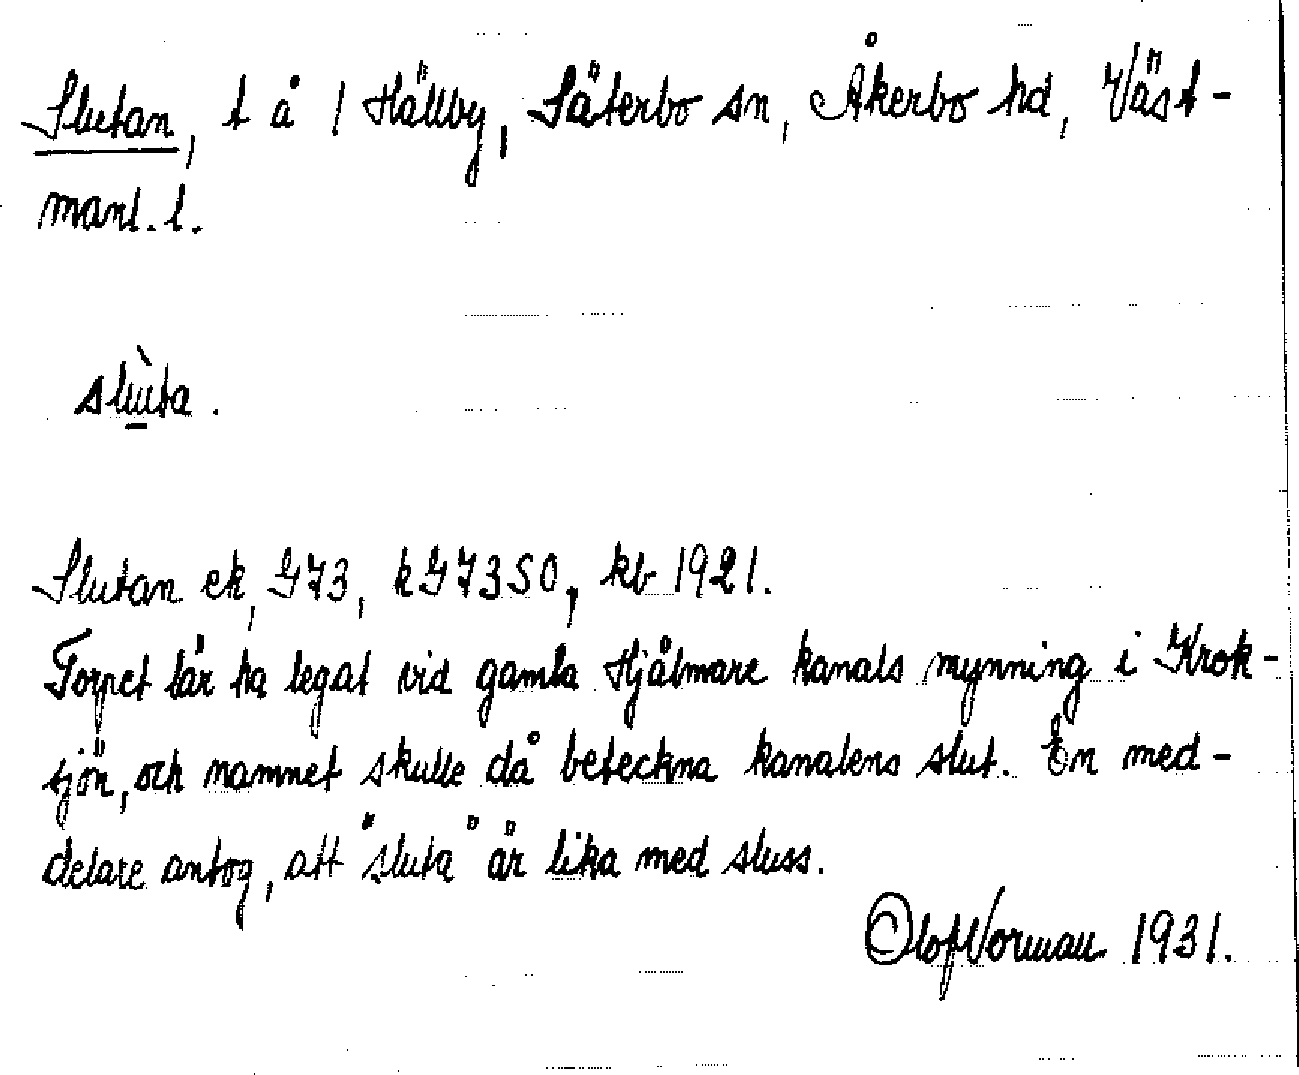 Slutan, t å 1 Hällby, Säterbo sn, Åkerbo hd, Väst-
manl. l.
slùta.
Slutan ek, G73, kG73SO, kb 1921.
Torpet lär ha legat vid gamla Hjälmare kanals mynning i Krok-
sjön, och namnet skulle då beteckna kanalens slut. En med-
delare antog, att "sluta" är lika med sluss.
Olof Norman 1931.